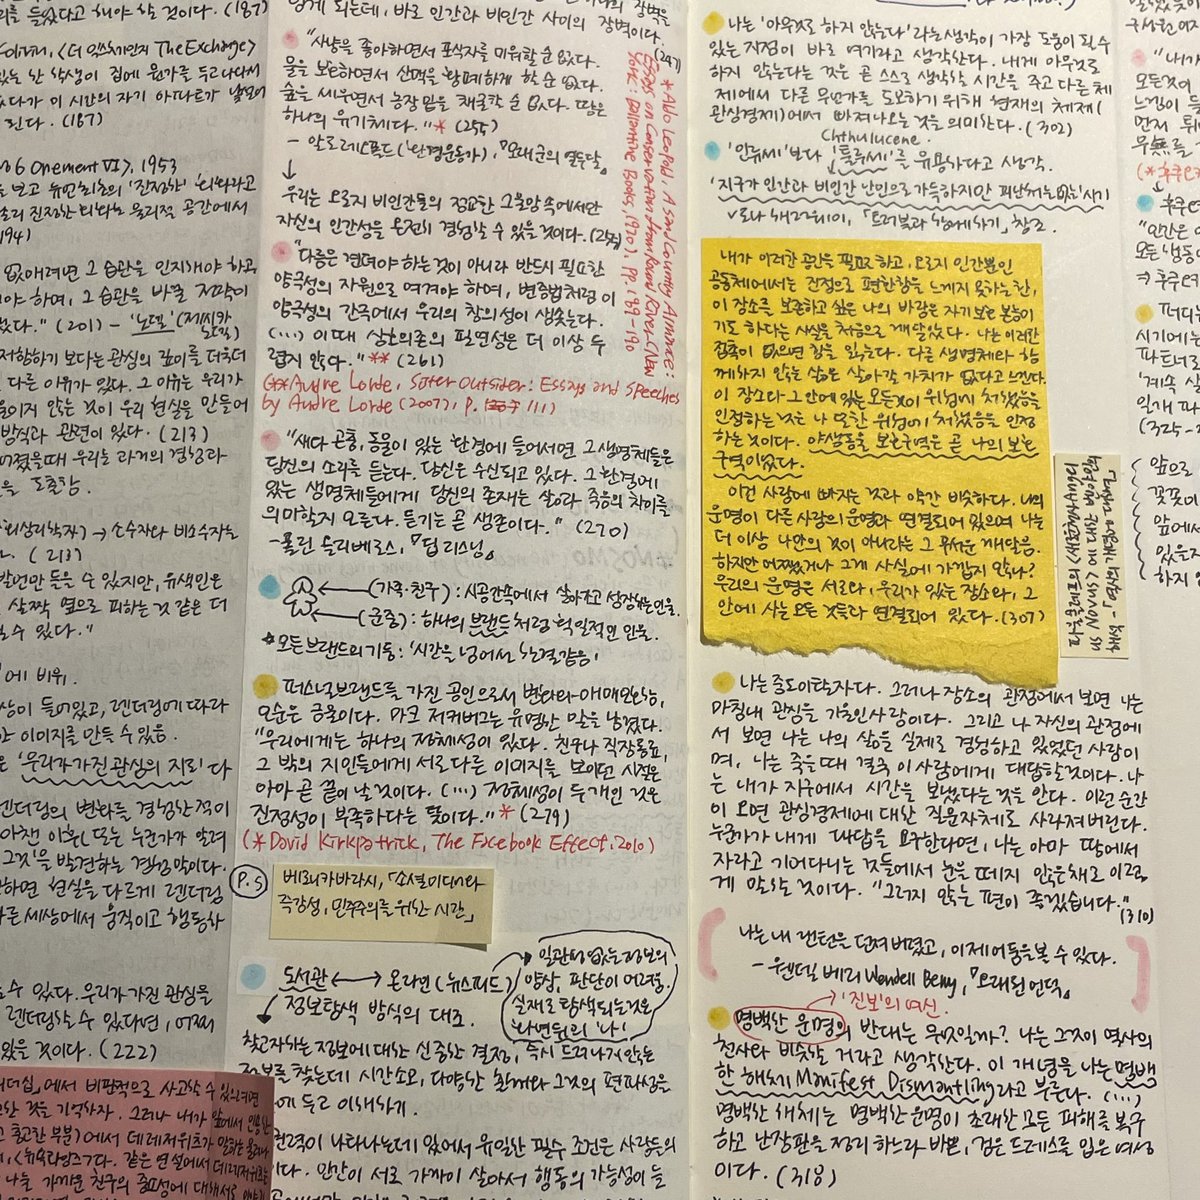 를 들었다고 해야 할 것이다. (187)
Forum, <더 익스체인지 The Exchange>
있는 한 학생이 집에 뭔가를 두고 나와서
(187)
06 Onement VI>, 1953
194)
없애려면 그 습관을 인지해야 하고
야 하며, 그 습관을 바꿀 전략이
(201) - '노델' (제시카 노델)
저항하기 보다는 관심의 깊이를 더욱 더
다른 이유가 있다. 그 이유는 우리가
울이지 않는 것이 우리 현실을 만들어
방식과 관련이 있다. (213)
어졌을 때 우리는 과거의 경험과
을 도출함.
(213)
발언만 들을 수 있지만, 유색인은
살짝 옆으로 피하는 것 같은 더
수 있다."
에 비유.
상이 들어있고, 렌더링에 따라
이미지를 만들 수 있음.
'우리가 가진 관심의 지도' 다
렌더링의 변화를 경험한 적이
아챈 이후 (또는 누군가가 알려
'그것'을 발견하는 경험 말이다.
하면 현실을 다르게 렌더링
다른 세상에서 움직이고 행동하
수 있다. 우리가 가진 관심을
렌더링할 수 있다면, 어쩌
있을 것이다. (222)
에서 비판적으로 사고할 수 있으려면
것을 기억하자. 그러나 내가 앞에서 인용한
같은 연설에서 데레저위츠는
나는 가까운 친구의 중요성에 대해서
렇게 되는데, 바로 인간과 비인간 사이의 장벽이다.
(247)
"사냥을 좋아하면서 포식자를 미워할 순 없다.
물을 보호하면서 산맥을 황폐하게 할 순 없다.
숲을 세우면서 농장 밑을 채굴할 순 없다. 땅은
하나의 유기체다." * (255)
- 알도 레오폴드 (환경운동가), 『모래 군의 열두 달』
* Aldo Leopold, A Sand County Almanac:
Essays on Conservation from Round River (New
York: Ballantine Books, 1970), pp. 189-190
우리는 오로지 비인간들의 정교한 그물망 속에서만
자신의 인간성을 온전히 경험할 수 있을 것이다. (256)
"다름은 견뎌야 하는 것이 아니라 반드시 필요한
양극성의 자원으로 여겨야 하며, 변증법처럼 이
양극성의 간극에서 우리의 창의성이 생솟는다.
(...) 이때 상호의존의 필연성은 더 이상 두
렵지 않다." ** (261)
(** Audre Lorde, Sister Outsider: Essays and Speeches
by Audre Lorde (2007), p. 111)
"새와 곤충, 동물이 있는 환경에 들어서면 그 생명체들은
당신의 소리를 듣는다. 당신은 수신되고 있다. 그 환경에
있는 생명체들에게 당신의 존재는 삶과 죽음의 차이를
의미할지 모른다. 듣기는 곧 생존이다." (270)
- 폴린 올리베로스, 『딥 리스닝』
(가족·친구) : 시공간 속에서 살아가고 성장하는 인물.
(군중) : 하나의 브랜드처럼 획일적인 인물.
* 모든 브랜드의 기둥 : '시간을 넘어서 한결같음'
퍼스널 브랜드를 가진 공인으로서 변화와 애매모호함,
모순은 금물이다. 마크 저커버그는 유명한 말을 남겼다.
"우리에게는 하나의 정체성이 있다. 친구나 직장 동료,
그 밖의 지인들에게 서로 다른 이미지를 보이던 시절은
아마 곧 끝이 날 것이다. (...) 정체성이 두 개인 것은
진정성이 부족하다는 뜻이다." * (279)
(* David Kirkpatrick, The Facebook Effect, 2010)
P.S
베로니카 바라시, 「소셜미디어와
즉각성, 민주주의를 위한 시간」
도서관 ↔ 온라인 (뉴스피드)
정보탐색 방식의 대조.
일관성 없는 정보의
양상, 판단이 어려움.
실제로 탐색되는 것은
'화면 뒤의 '나'
찾고자 하는 정보에 대한 신중한 결정, 즉시 드러나지 않는
정보를 찾는데 시간 소요, 다양한 출처와 그것의 편파성을
에 두고 이해하기.
권력이 나타나는데 있어서 유일한 필수 조건은 사람들의
이다. 인간이 서로 가까이 살아서 행동의 가능성이 늘
나는 '아무것도 하지 않는다'라는 생각이 가장 도움이 될 수
있는 지점이 바로 여기라고 생각한다. 내게 아무것도
하지 않는다는 것은 곧 스스로 생각할 시간을 주고 다른 체
제에서 다른 무언가를 도모하기 위해 현재의 체제(
관심경제)에서 빠져나오는 것을 의미한다. (302)
Chthulucene.
'인류세' 보다 '툴루세'를 유용하다고 생각.
'지구가 인간과 비인간 난민으로 가득하지만 피난처는 없는' 시기
도나 해러웨이, 『트러블과 함께하기』 참조.
내가 이러한 공간을 필요로 하고, 오로지 인간뿐인
공동체에서는 진정으로 편안함을 느끼지 못하는 한,
이 장소를 보존하고 싶은 나의 바람은 자기보존 본능이
기도 하다는 사실을 처음으로 깨달았다. 나는 이러한
접촉이 없으면 힘을 잃는다. 다른 생명체와 함
께하지 않는 삶은 살아갈 가치가 없다고 느낀다.
이 장소와 그 안에 있는 모든 것이 위험에 처했음을
인정하는 것은 나 또한 위험에 처했음을 인정
하는 것이다. 야생동물 보호구역은 곧 나의 보호
구역이었다.
이건 사랑에 빠지는 것과 약간 비슷하다. 나의
운명이 다른 사람의 운명과 연결되어 있으며 나는
더 이상 나만의 것이 아니라는 그 무서운 깨달음.
하지만 어쨌거나 그게 사실에 가깝지 않나?
우리의 운명은 서로와, 우리가 있는 장소와, 그
안에 사는 모든 것들과 연결되어 있다. (307)
나는 중도이탈자다. 그러나 장소의 관점에서 보면 나는
마침내 관심을 기울인 사람이다. 그리고 나 자신의 관점에
서 보면 나는 나의 삶을 실제로 경험하고 있었던 사람이
며, 나는 죽을 때 결국 이 사람에게 대답할 것이다. 나
는 내가 지구에서 시간을 보냈다는 것을 안다. 이런 순간
이 오면 관심경제에 대한 질문 자체도 사라져버린다.
누군가가 내게 대답을 요구한다면, 나는 아마 땅에서
자라고 기어다니는 것들에서 눈을 떼지 않은 채로 이렇
게 말할 것이다. "그러지 않는 편이 좋겠습니다."
(310)
나는 내 랜턴을 던져 버렸고, 이제 어둠을 볼 수 있다.
- 웬델 베리 Wendell Berry, 『오래된 언덕』
'진보'의 여신
명백한 운명의 반대는 무엇일까? 나는 그것이 역사의
천사와 비슷할 거라고 생각한다. 이 개념을 나는 명백
한 해체 Manifest Dismantling라고 부른다. (...)
명백한 해체는 명백한 운명이 초래한 모든 피해를 복구
하고 난장판을 정리하느라 바쁜, 검은 드레스를 입은 여성
이다. (318)
"내가
모든 것이
느낌이 들
먼저
무無를
(* 후쿠오
후쿠오
"인간은
모든 냉동
퍼디
시기에는
파트너로
'계속 살
(325-
앞으로
꽃꽂이
앞에서
있을지
하지 않